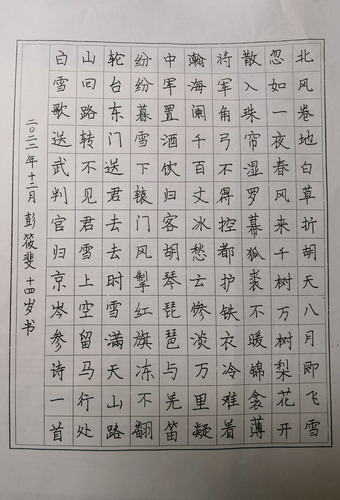 北风卷地白草折胡天八月即飞雪
忽如一夜春风来千树万树梨花开
散入珠帘湿罗幕狐裘不暖锦衾薄
将军角弓不得控都护铁衣冷难着
瀚海阑千百丈冰愁云惨淡万里凝
中军置酒饮归客胡琴琵琶与羌笛
纷纷暮雪下辕门风掣红旗冻不翻
轮台东门送君去去时雪满天山路
山回路转不见君雪上空留马行处
白雪歌送武判官归京岑参诗一首
二〇二二年十二月 彭筱斐 十四岁书